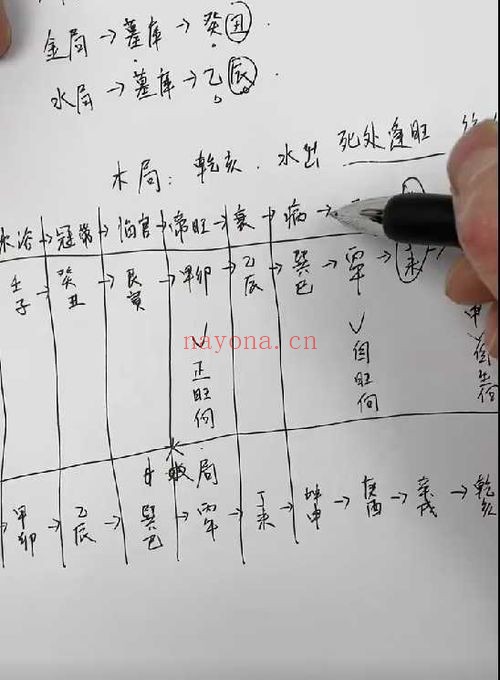 金局→墓库→癸丑
水局→墓库→乙辰
木局：乾亥.水出 死处逢旺
沐浴→冠带→临官→帝旺→衰→病→
壬子→癸丑→艮寅→甲卯→乙辰→巽巳→丙午→未
nayona.cn
正旺向
自旺向
申
自生向
火局
→甲卯→乙辰→巽巳→丙午→丁未→坤申→庚酉→辛戌→乾亥